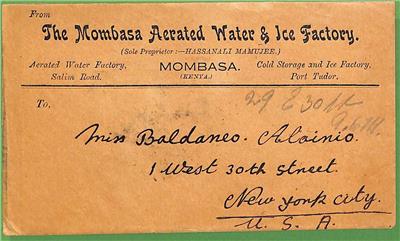 From
The Mombasa Aerated Water & Ice Factory.
(Sole Proprietor:—HASSANALI MAMUJEE.)
Aerated Water Factory, MOMBASA. Cold Storage and Ice Factory,
Salim Road. (KENYA.) Port Tudor.
To,
29 E 30 St
Miss Baldaneo. Aloinio.
1 West 30th street.
New York City.
U. S. A.